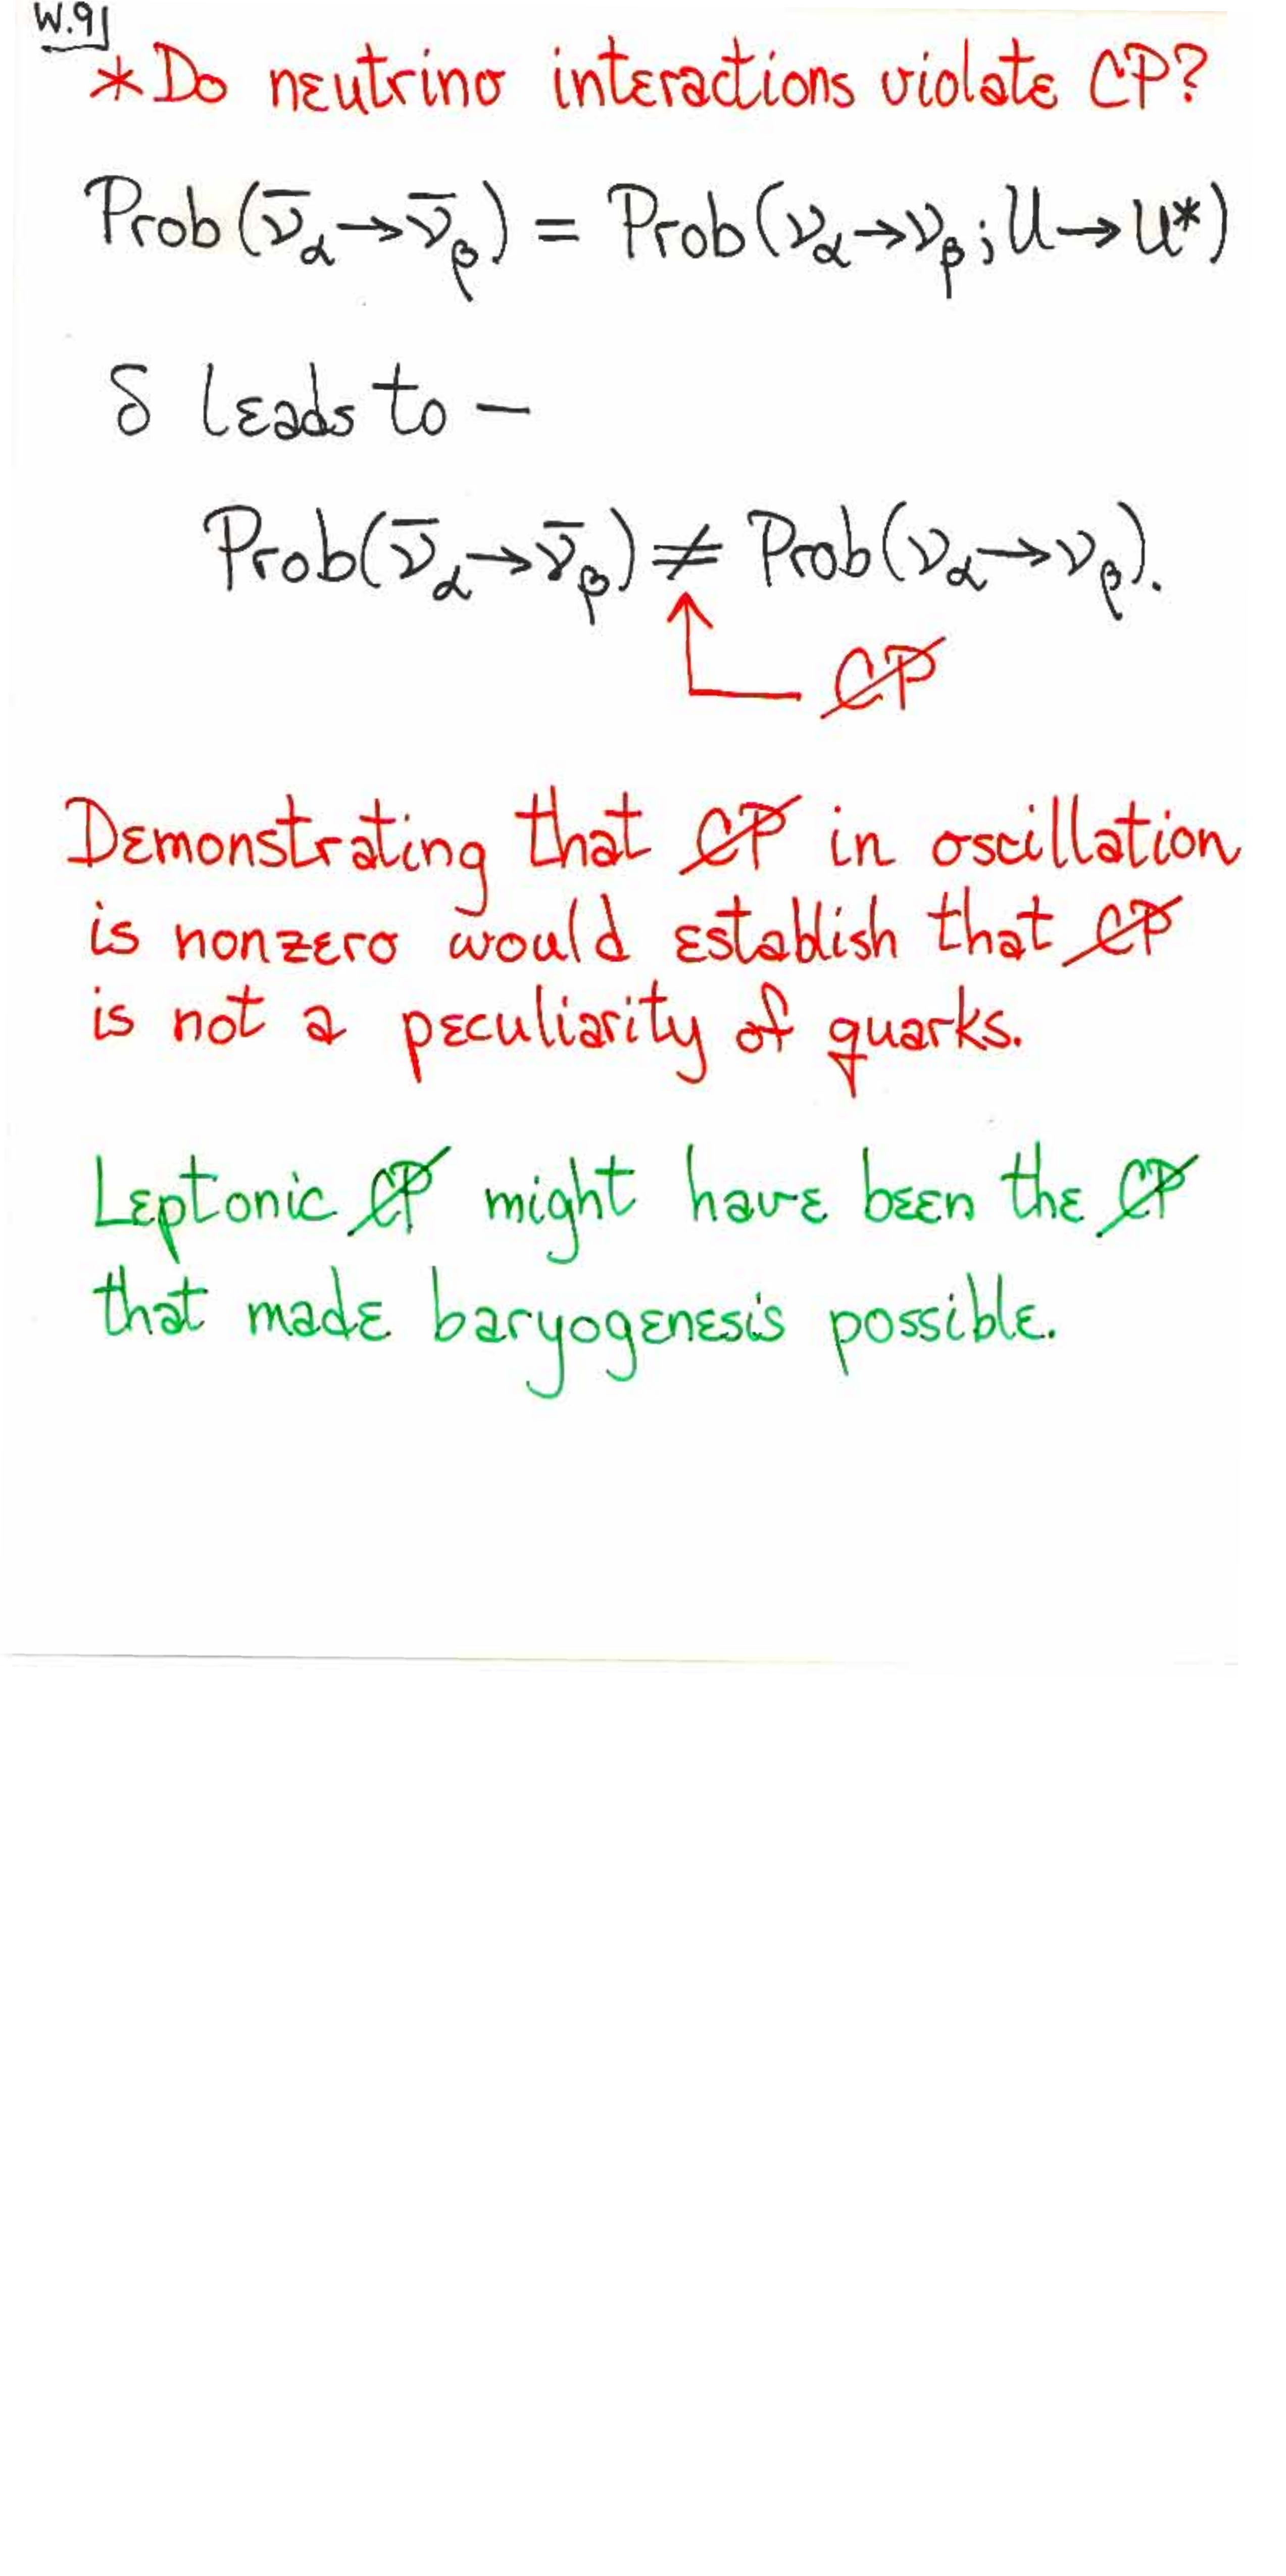 W.9
*Do neutrino interactions violate CP?
Prob(ν̄α→ν̄β) = Prob(να→νβ; U→U*)
δ leads to –
Prob(ν̄α→ν̄β) ≠ Prob(να→νβ).
C̸P̸
Demonstrating that C̸P̸ in oscillation
is nonzero would establish that C̸P̸
is not a peculiarity of quarks.
Leptonic C̸P̸ might have been the C̸P̸
that made baryogenesis possible.